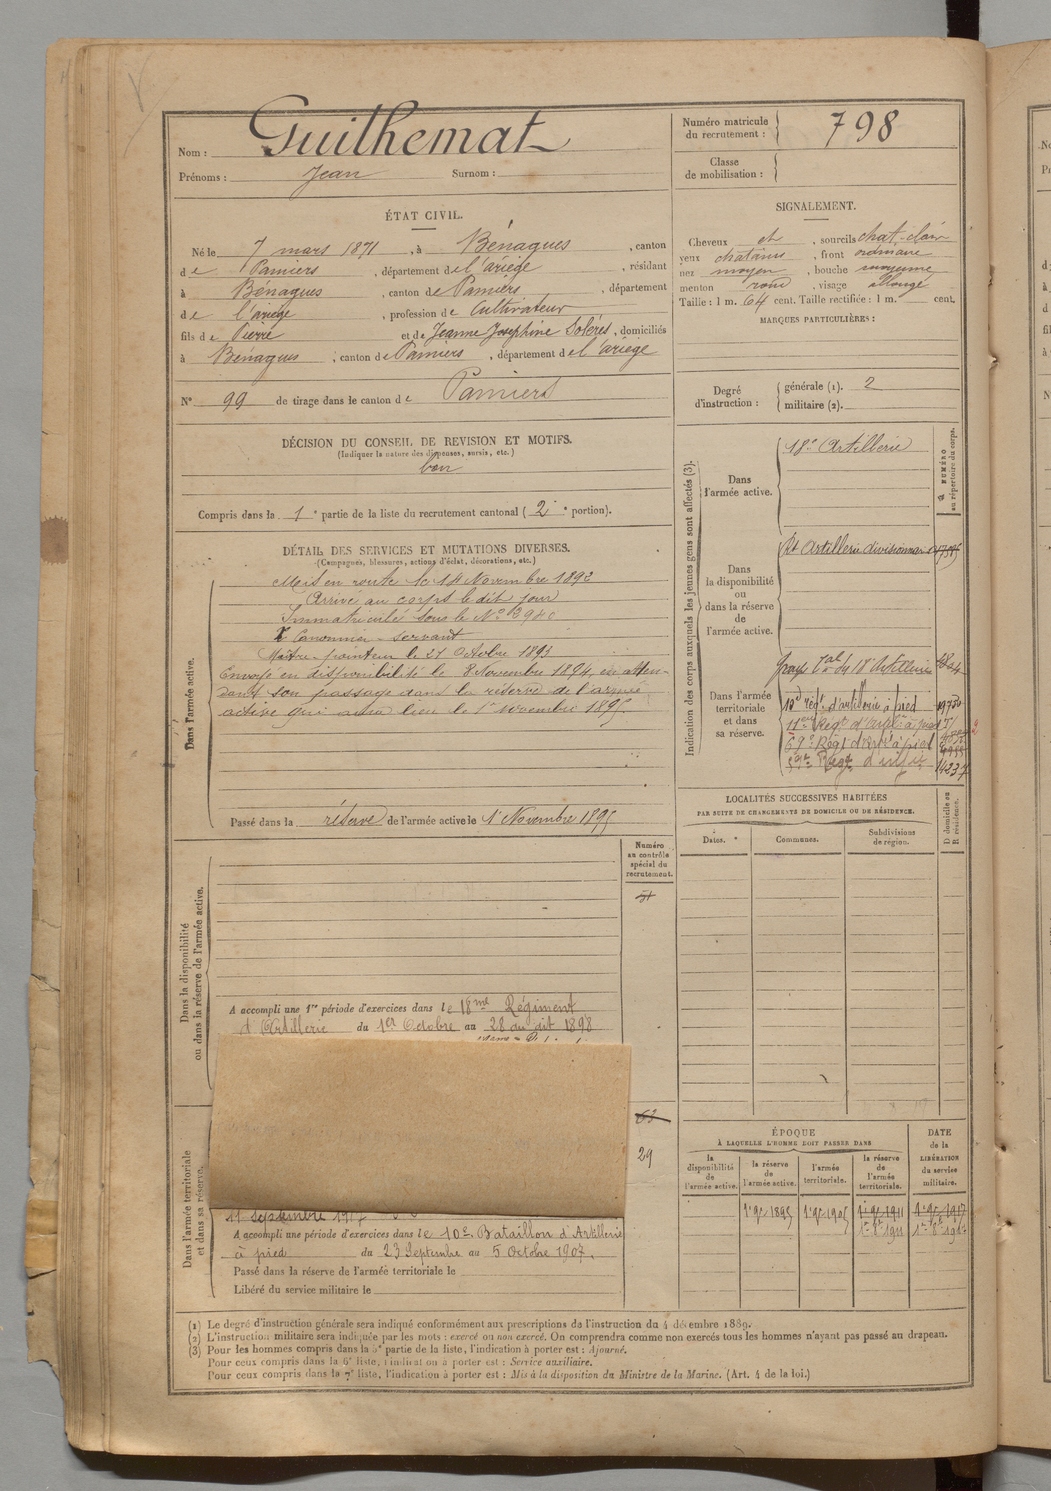 Nom : Guilhemat
Prénoms : Jean Surnom :
Numéro matricule du recrutement : 798
Classe de mobilisation :
ÉTAT CIVIL.
Né le 7 mars 1871, à Bénagues, canton
de Pamiers, département de l'ariège, résidant
à Bénagues, canton de Pamiers, département
de l'ariège, profession de Cultivateur
fils de Pierre et de Jeanne Josephine Solères, domiciliés
à Bénagues, canton de Pamiers, département de l'ariège
N° 99 de tirage dans le canton de Pamiers
SIGNALEMENT.
Cheveux et, sourcils chat-clair
yeux chatains, front ordinaire
nez moyen, bouche moyenne
menton rond, visage allongé
Taille : 1 m. 64 cent. Taille rectifiée : 1 m. cent.
MARQUES PARTICULIÈRES :
Degré d'instruction : générale (1). 2
militaire (2).
DÉCISION DU CONSEIL DE REVISION ET MOTIFS.
(Indiquer la nature des dispenses, sursis, etc.)
bon
Compris dans la 1e partie de la liste du recrutement cantonal (2e portion).
DÉTAIL DES SERVICES ET MUTATIONS DIVERSES.
(Campagnes, blessures, actions d'éclat, décorations, etc.)
Dans l'armée active.
Mis en route le 14 Novembre 1892
Arrivé au corps le dit jour
Immatriculé sous le N° 3940
Canonnier-servant
Maître-pointeur le 21 Octobre 1893
Envoyé en disponibilité le 8 Novembre 1894, en atten-
dant son passage dans la réserve de l'armée
active qui aura lieu le 1er novembre 1895.
Passé dans la réserve de l'armée active le 1er Novembre 1895
Indication des corps auxquels les jeunes gens sont affectés (3).
NUMÉRO au répertoire du corps.
Dans l'armée active.
18e Artillerie
Dans la disponibilité ou dans la réserve de l'armée active.
Rt Artillerie divisionnaire
Dans l'armée territoriale et dans sa réserve.
du 18e Artillerie
10e régt d'artillerie à pied
11e Régt d'artie à pied
14237
LOCALITÉS SUCCESSIVES HABITÉES
PAR SUITE DE CHANGEMENTS DE DOMICILE OU DE RÉSIDENCE.
Dates.
Communes.
Subdivisions de région.
D domicile ou R résidence.
Numéro au contrôle spécial du recrutement.
51
Dans la disponibilité ou dans la réserve de l'armée active.
A accompli une 1re période d'exercices dans le 18me Régiment
d'Artillerie du 1er Octobre au 28 du dit 1898
63
29
Dans l'armée territoriale et dans sa réserve.
11 septembre 1917
A accompli une période d'exercices dans le 10e Bataillon d'Artillerie
à pied du 23 Septembre au 5 Octobre 1907.
Passé dans la réserve de l'armée territoriale le
Libéré du service militaire le
ÉPOQUE
À LAQUELLE L'HOMME DOIT PASSER DANS
la disponibilité de l'armée active.
la réserve de l'armée active.
l'armée territoriale.
la réserve de l'armée territoriale.
DATE de la LIBÉRATION du service militaire.
1er 9e 1895
1er 9e 1905
1er 9e 1911
1er 9e 1917
(1) Le degré d'instruction générale sera indiqué conformément aux prescriptions de l'instruction du 4 décembre 1889.
(2) L'instruction militaire sera indiquée par les mots : exercé ou non exercé. On comprendra comme non exercés tous les hommes n'ayant pas passé au drapeau.
(3) Pour les hommes compris dans la 5e partie de la liste, l'indication à porter est : Ajourné.
Pour ceux compris dans la 6e liste, l'indication à porter est : Service auxiliaire.
Pour ceux compris dans la 7e liste, l'indication à porter est : Mis à la disposition du Ministre de la Marine. (Art. 4 de la loi.)